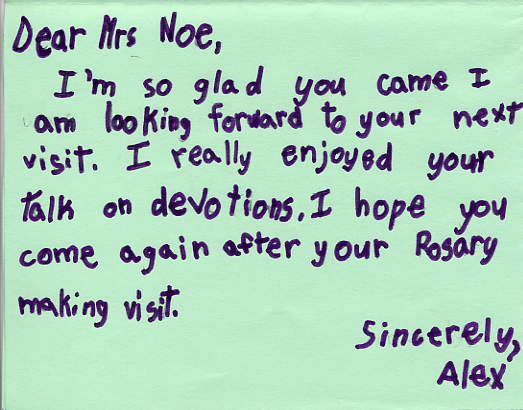 Dear Mrs Noe,
I'm so glad you came I
am looking forward to your next
visit. I really enjoyed your
talk on devotions. I hope you
come again after your Rosary
making visit.
Sincerely,
Alex